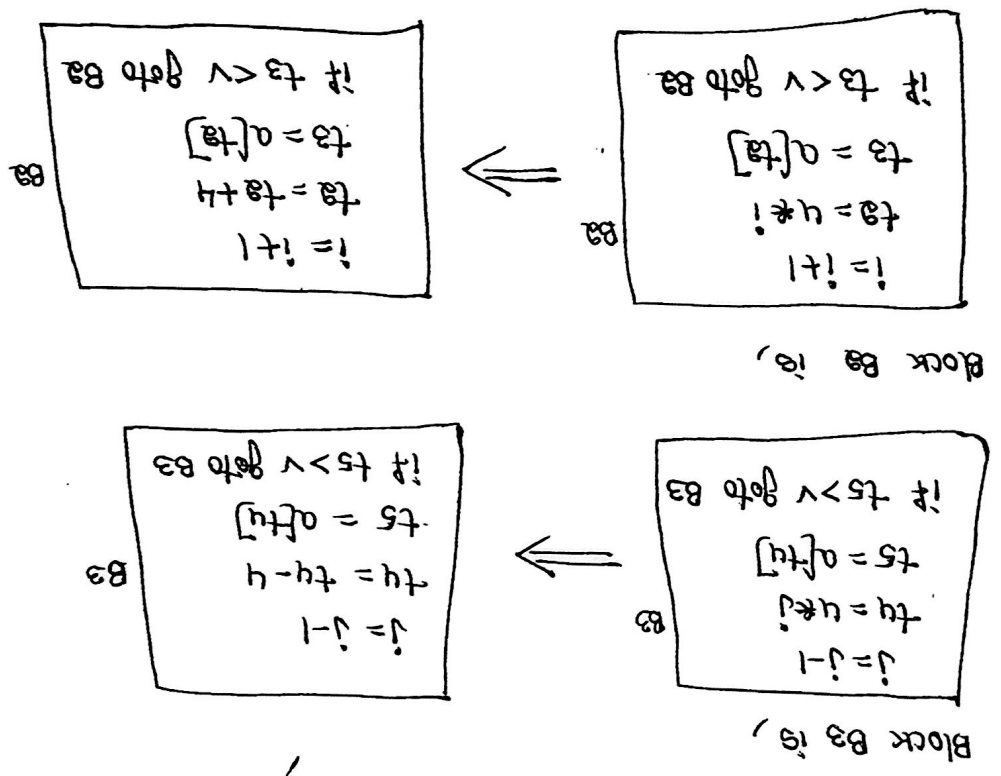 Block B3 is,
B3
j = j-1
t4 = 4*j
t5 = a[t4]
if t5>v goto B3
⇒
B3
j = j-1
t4 = t4-4
t5 = a[t4]
if t5>v goto B3
Block B2 is,
B2
i = i+1
t2 = 4*i
t3 = a[t2]
if t3<v goto B2
⇒
B2
i = i+1
t2 = t2+4
t3 = a[t2]
if t3<v goto B2